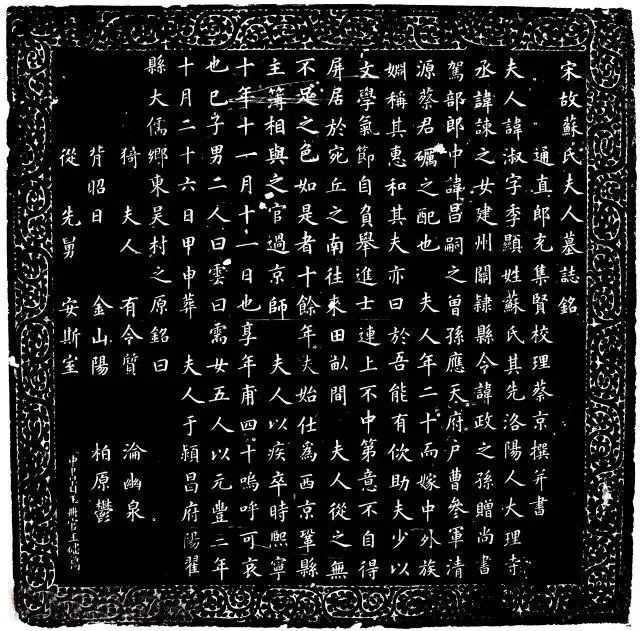 宋故蘇氏夫人墓誌銘
通直郎充集賢校理蔡京撰并書
夫人諱淑字季顯姓蘇氏其先洛陽人大理寺
丞諱諫之女建州關隸縣令諱政之孫贈尚書
駕部郎中諱昌嗣之曾孫應天府户曹參軍清
源蔡君礪之配也 夫人年二十而嫁中外族
婣稱其惠和其夫亦曰於吾能有佽助夫少以
文學氣節自負舉進士連上不中第意不自得
屏居於宛丘之南往來田畝間 夫人從之無
不足之色如是者十餘年夫始仕為西京鞏縣
主簿相與之官過京師 夫人以疾卒時熙寧
十年十一月十一日也享年甫四十嗚呼可哀
也已子男二人曰雲曰需女五人以元豐二年
十月二十六日甲申葬 夫人于潁昌府陽翟
縣大儒鄉東吳村之原銘曰
猗 夫人 有令質 淪幽泉
背昭日 金山陽 柏原鬱
從 先舅 安斯室
中書省玉冊官王